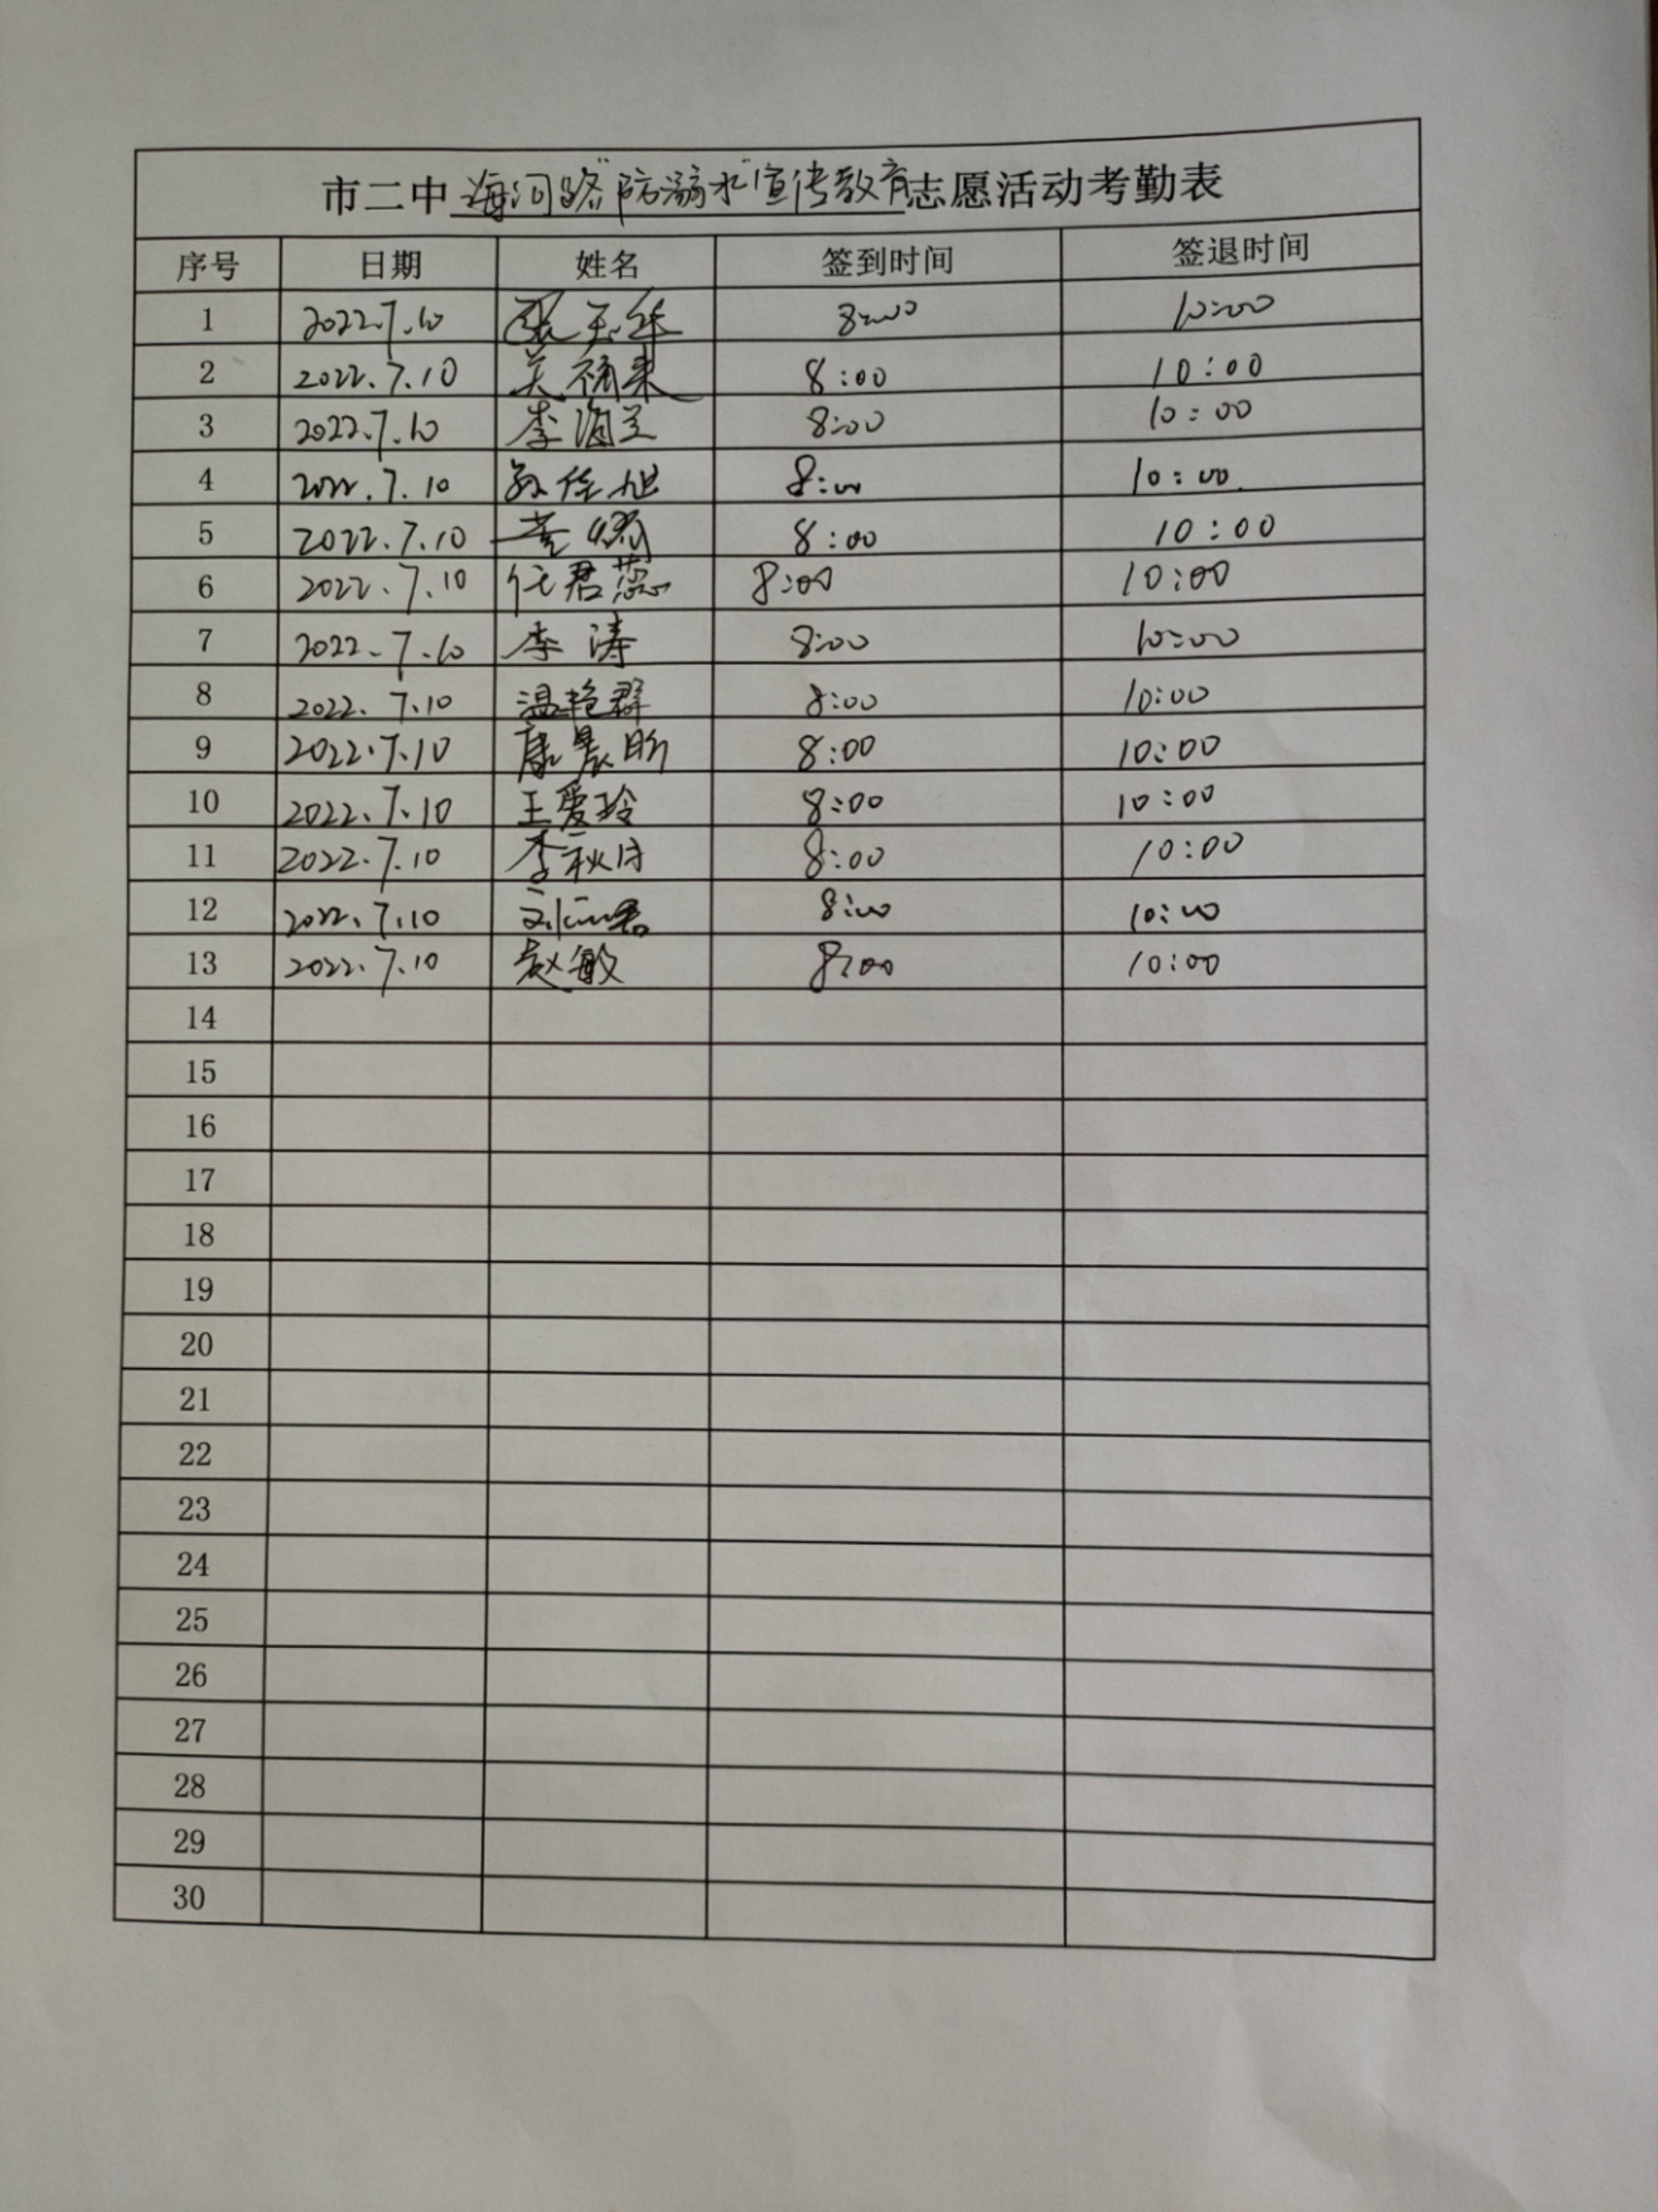 市二中海河路“防溺水”宣传教育志愿活动考勤表
序号 日期 姓名 签到时间 签退时间
1 2022.7.10 张 华 8:00 10:00
2 2022.7.10 8:00 10:00
3 2022.7.10 李海兰 8:00 10:00
4 2022.7.10 8:00 10:00
5 2022.7.10 8:00 10:00
6 2022.7.10 任君蕊 8:00 10:00
7 2022.7.10 李涛 8:00 10:00
8 2022.7.10 温艳群 8:00 10:00
9 2022.7.10 康晨昕 8:00 10:00
10 2022.7.10 王爱玲 8:00 10:00
11 2022.7.10 李秋月 8:00 10:00
12 2022.7.10 8:00 10:00
13 2022.7.10 赵敏 8:00 10:00
14
15
16
17
18
19
20
21
22
23
24
25
26
27
28
29
30